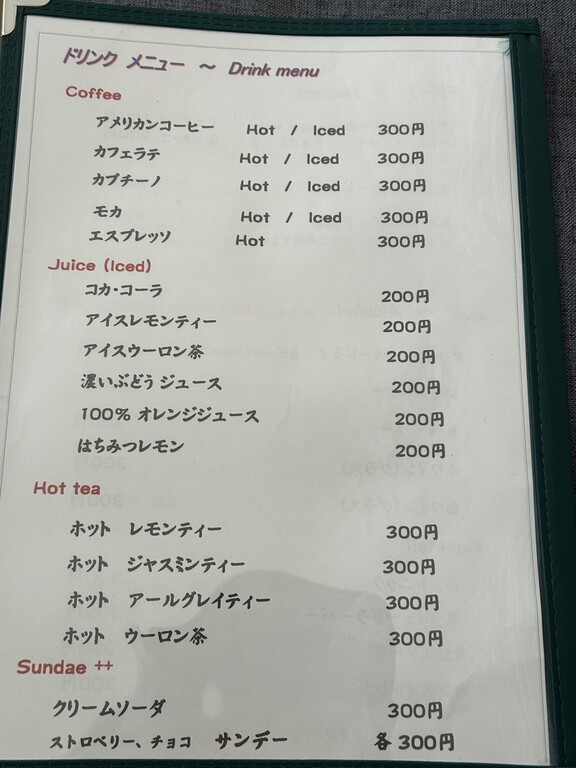 ドリンク メニュー ～ Drink menu
Coffee
アメリカンコーヒー Hot / Iced 300円
カフェラテ Hot / Iced 300円
カプチーノ Hot / Iced 300円
モカ Hot / Iced 300円
エスプレッソ Hot 300円
Juice (Iced)
コカ・コーラ 200円
アイスレモンティー 200円
アイスウーロン茶 200円
濃いぶどうジュース 200円
100% オレンジジュース 200円
はちみつレモン 200円
Hot tea
ホット レモンティー 300円
ホット ジャスミンティー 300円
ホット アールグレイティー 300円
ホット ウーロン茶 300円
Sundae ++
クリームソーダ 300円
ストロベリー、チョコ サンデー 各300円